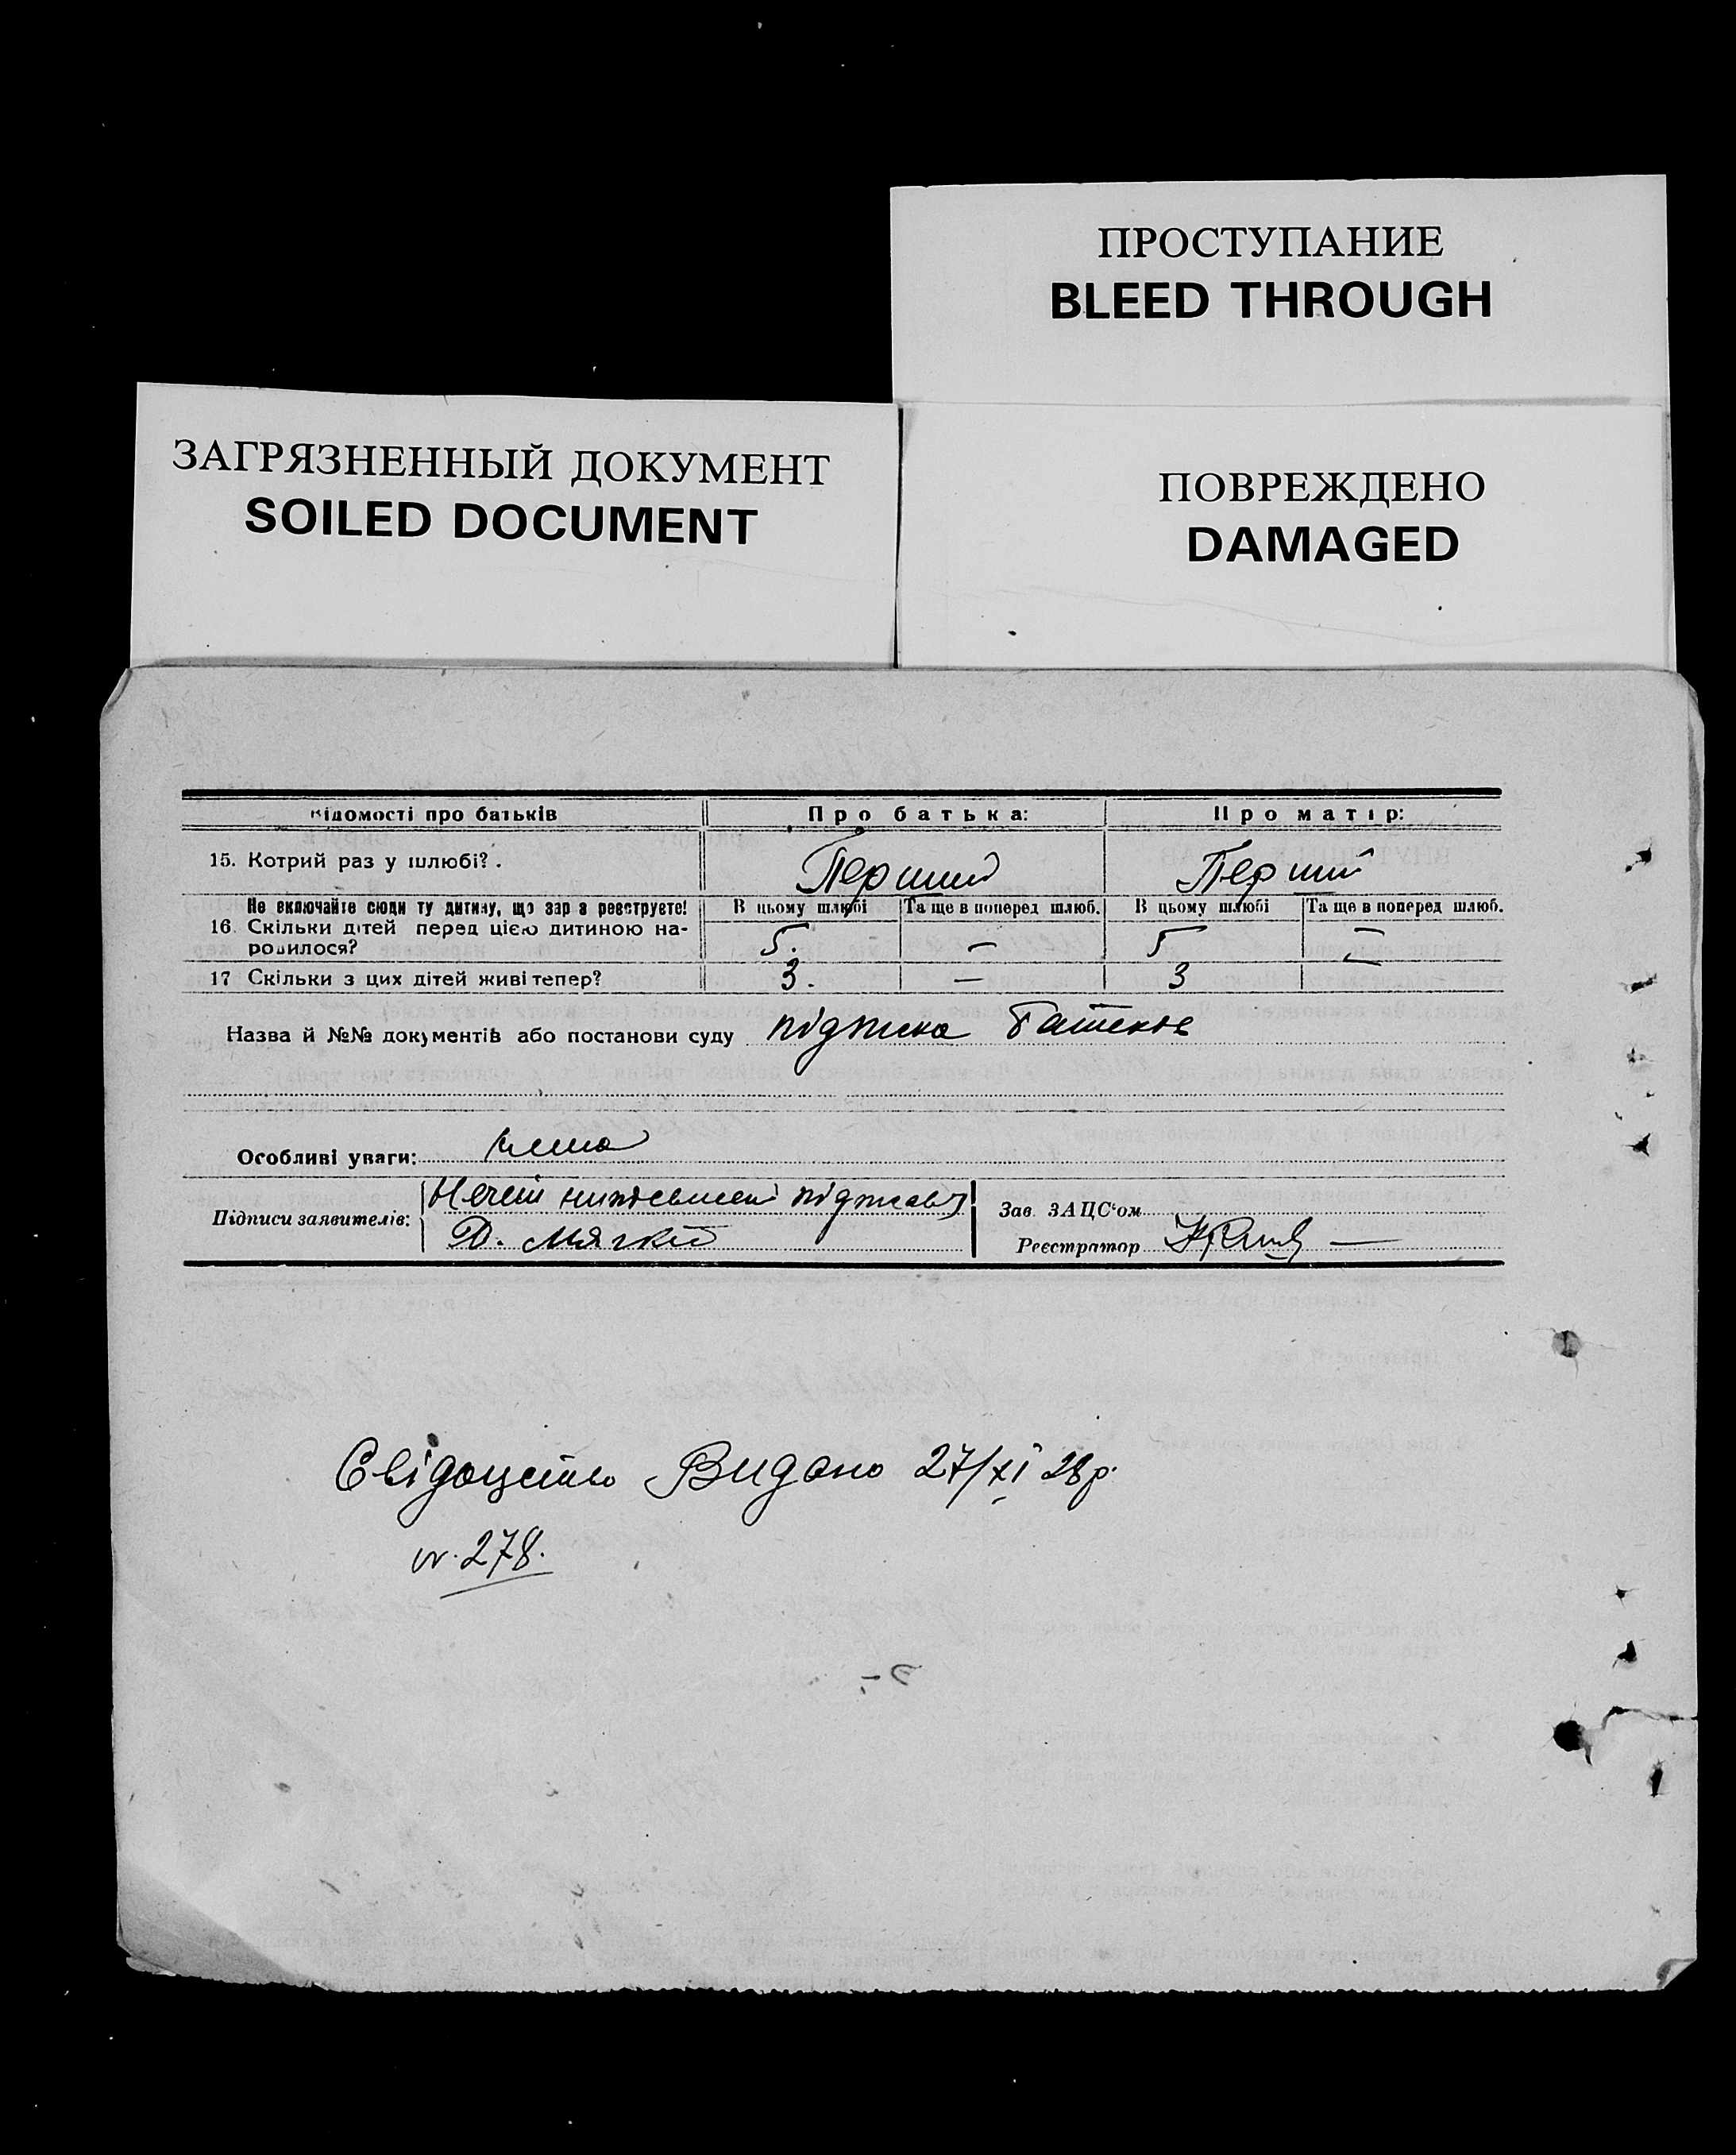 ПРОСТУПАНИЕ
BLEED THROUGH
ЗАГРЯЗНЕННЫЙ ДОКУМЕНТ
SOILED DOCUMENT
ПОВРЕЖДЕНО
DAMAGED
Відомості про батьків Про батька: Про матір:
15. Котрий раз у шлюбі? . Перший Перший
Не включайте сюди ту дитину, що зараз реєструєте! В цьому шлюбі Та ще в поперед шлюб. В цьому шлюбі Та ще в поперед шлюб.
16. Скільки дітей перед цією дитиною на-
родилося? 5. — 5 —
17 Скільки з цих дітей живі тепер? 3. — 3 —
Назва й №№ документів або постанови суду підписка
Особливі уваги:
Підписи заявителів:
Д. Мягкий
Зав. ЗАЦС'ом
Реєстратор
Свідоцтво Видано 27/XI 28р.
№ 278.